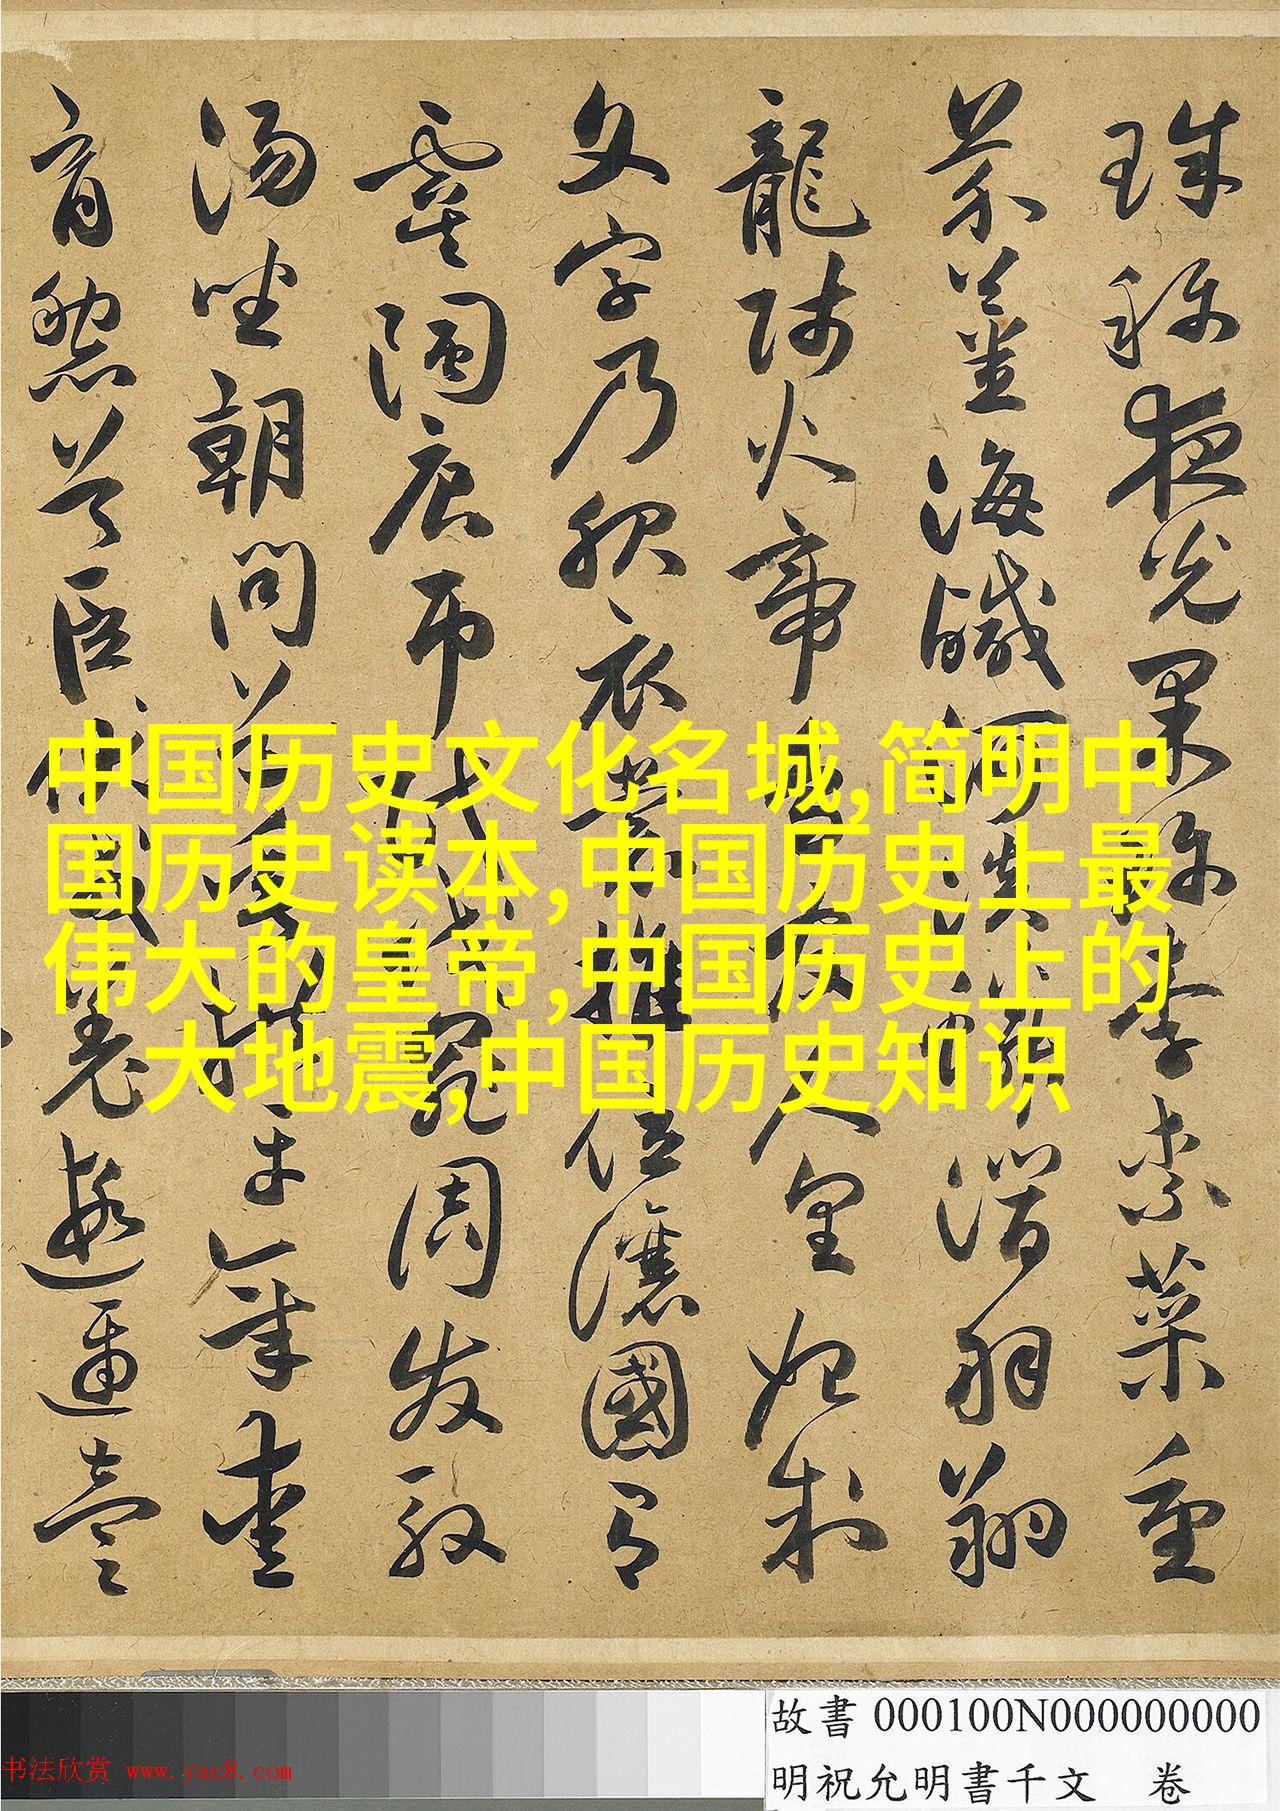 珠称夜光果珍李柰菜重
芥薑海鹹河淡鱗潛羽翔
龍師火帝鳥官人皇始制
文字乃服衣裳推位讓國有
虞陶唐弔民伐罪周發殷
湯坐朝問道垂拱平章愛
育黎首臣伏戎羌遐邇壹
中国历史文化名城,简明中
国历史读本,中国历史上最
伟大的皇帝,中国历史上的
大地震,中国历史知识
故書 000100N000000000
明祝允明書千文 卷
书法欣赏 www.yac8.com